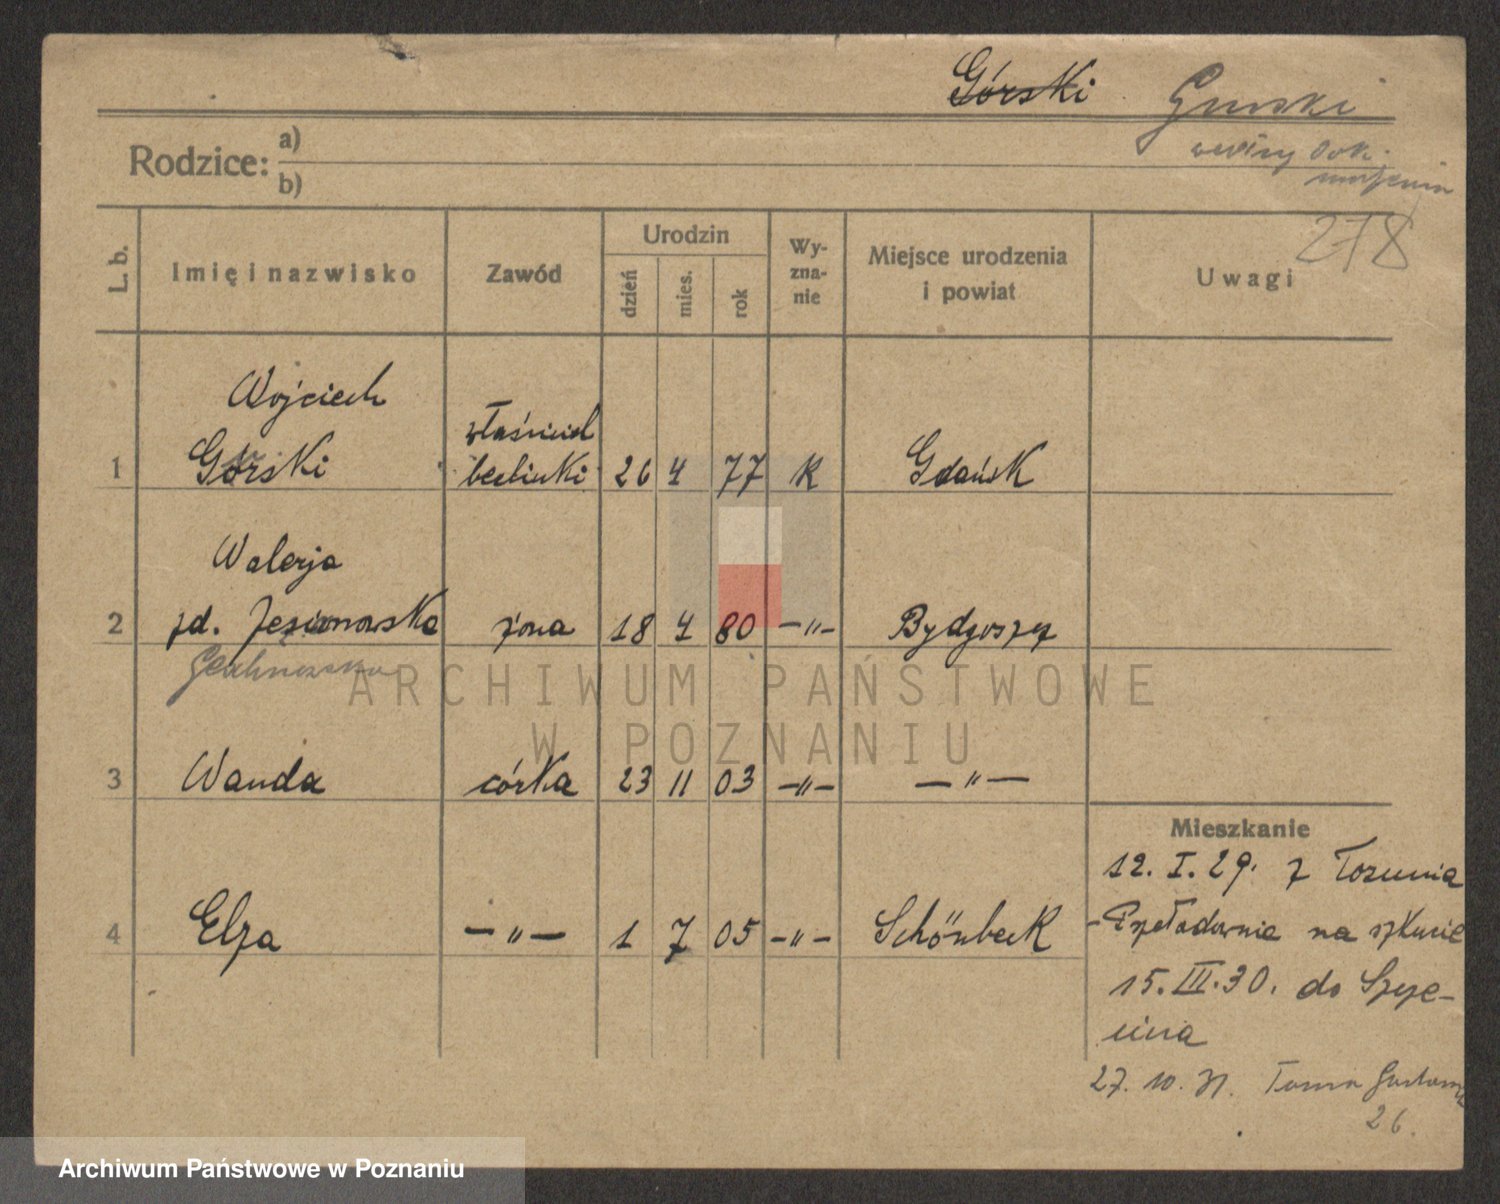 Górski Gurski
według Dok.
urodzenia
278
Rodzice: a)
b)
L. b. Imię i nazwisko Zawód Urodzin Wy-zna-nie Miejsce urodzenia i powiat Uwagi
dzień mies. rok
Wojciech
1 Górski właściciel berlinki 26 4 77 K Gdańsk
Walerja
2 zd. Jesionowska żona 18 4 80 —"— Bydgoszcz
3 Wanda córka 23 11 03 —"— —"—
4 Elza —"— 1 7 05 —"— Schönbeck
Mieszkanie
12. I. 29. z Torunia
- Przeładownia na szkucie
15. III. 30. do Szcze-
cina
27. 10. 31.
26.
ARCHIWUM PAŃSTWOWE
W POZNANIU
Archiwum Państwowe w Poznaniu